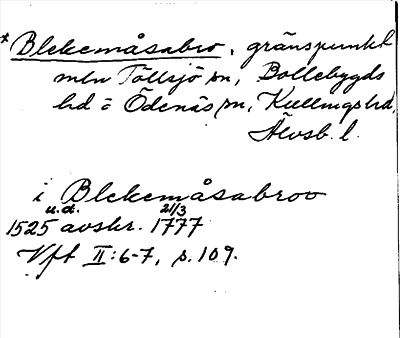 *Blekemåsabro, gränspunkt
mln Töllsjö sn, Bollebygds
hd o Ödenäs sn, Kullings hd,
Älvsb. l.
i Blekemåsabroo
1525 u.d. avskr. 21/3 1777
Vft II:6-7, s. 109.